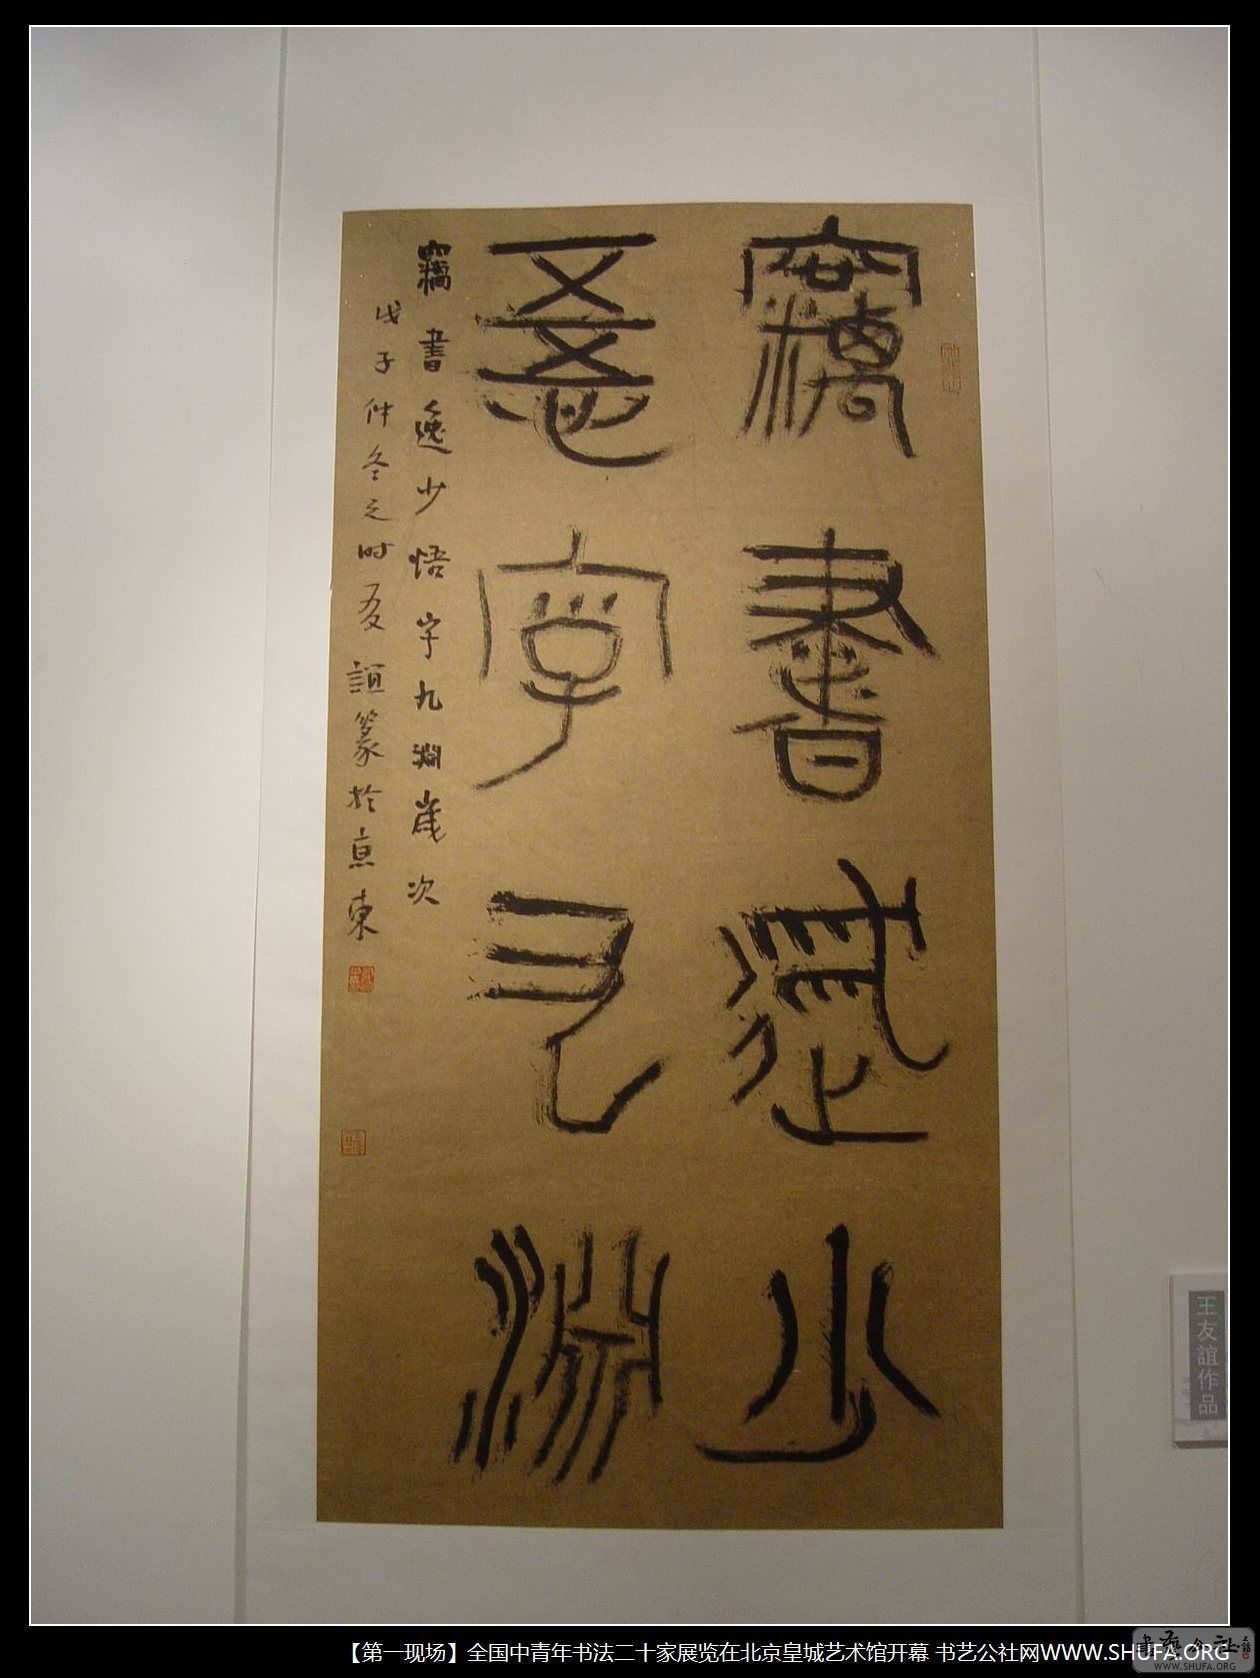 竊書逸少
悟字九淵
竊書逸少悟字九淵歲次
戊子仲冬之時友誼篆於京東
王友誼作品
【第一现场】全国中青年书法二十家展览在北京皇城艺术馆开幕 书艺公社网WWW.SHUFA.ORG
書藝公社
WWW.SHUFA.ORG